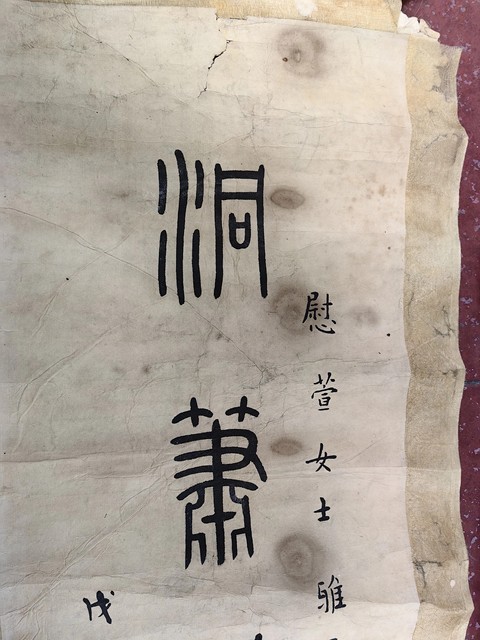 慰萱女士雅
洞蕭
戊